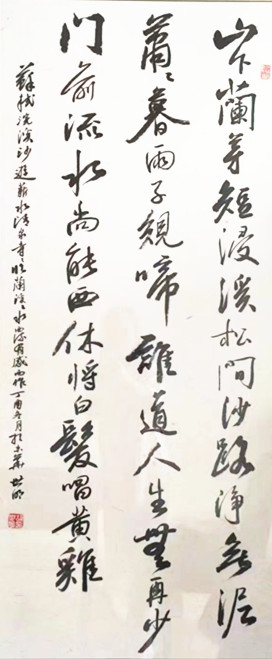 山下蘭芽短浸溪松間沙路淨無泥
蕭〻暮雨子規啼誰道人生無再少
門前流水尚能西休將白髮唱黃雞
蘇軾浣溪沙遊蘄水清泉寺寺臨蘭溪溪水西流有感而作丁酉年月於京華